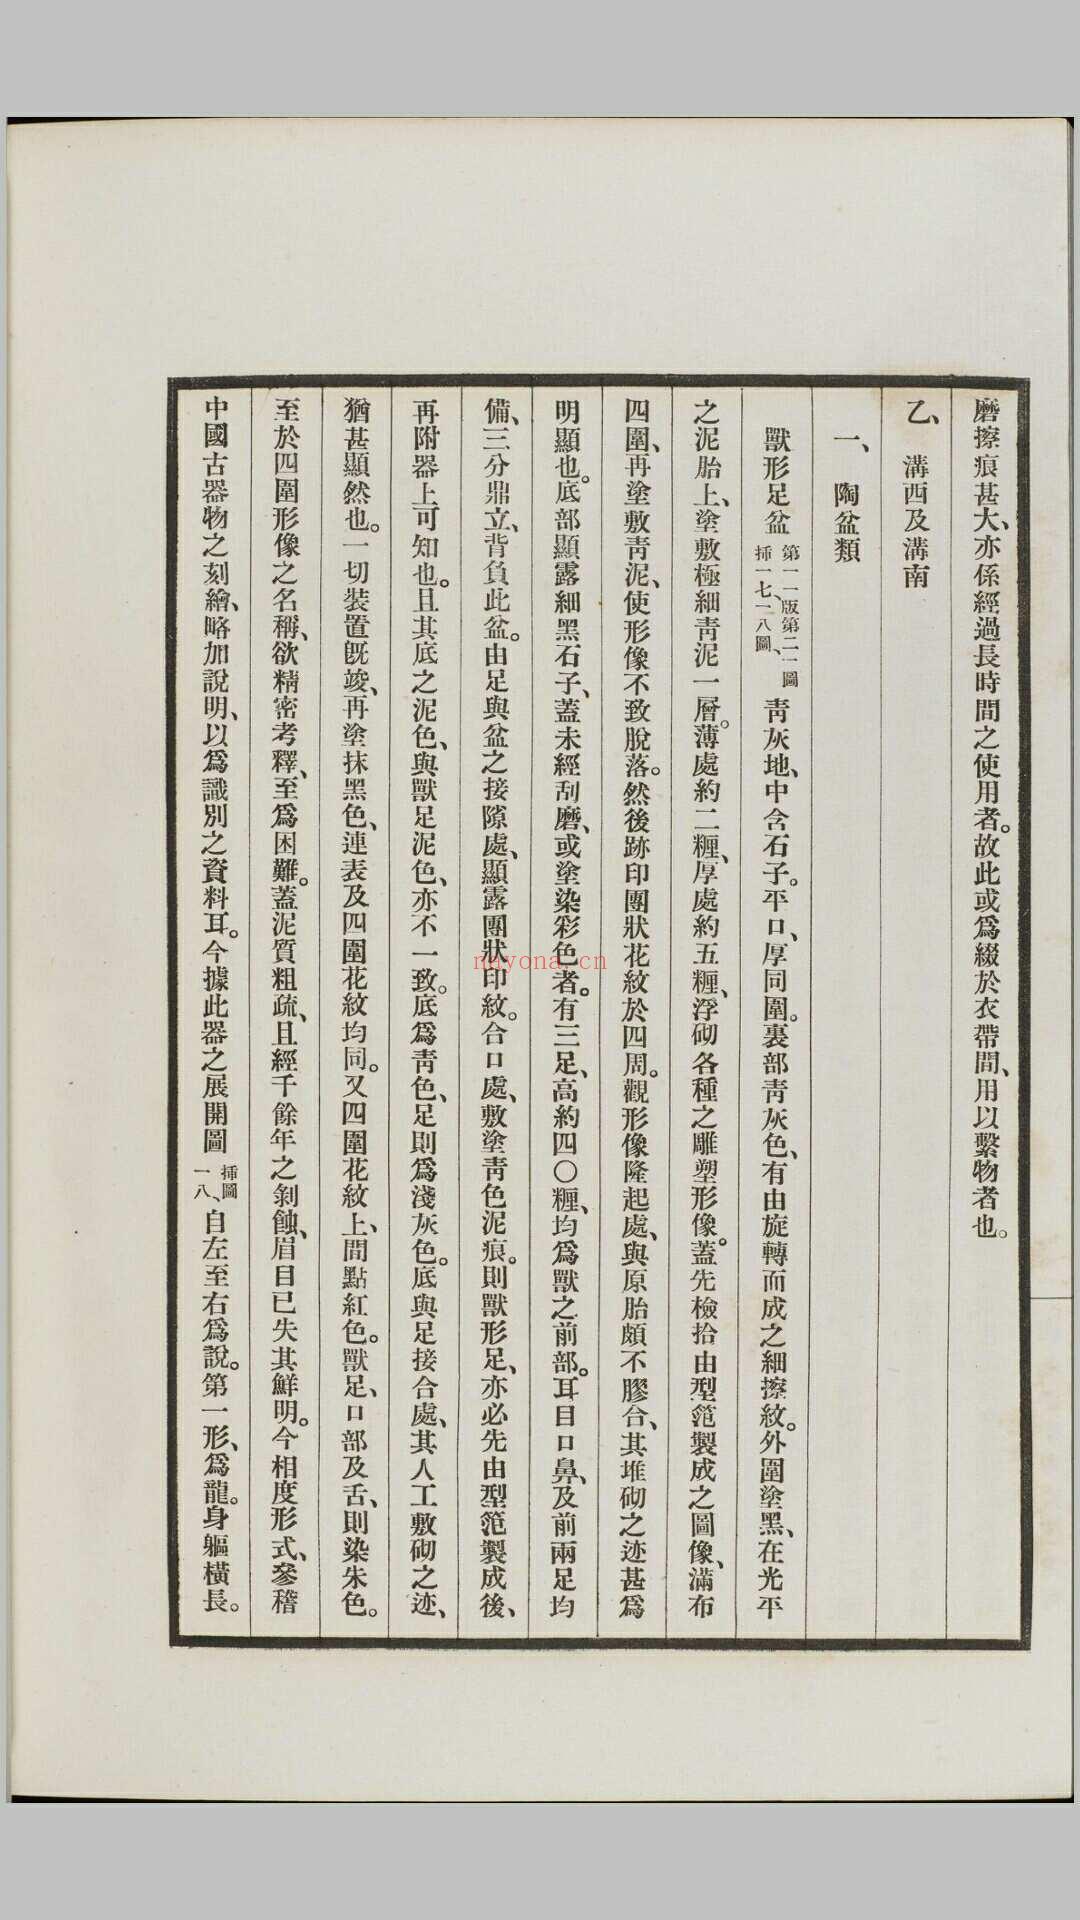 磨擦痕甚大、亦係經過長時間之使用者。故此或爲綴於衣帶間、用以繫物者也。
乙、溝西及溝南
一、陶盆類
獸形足盆
第一一版第二一圖
插一七、一八圖、
靑灰地、中含石子。平口、厚同圍。裏部靑灰色、有由旋轉而成之細擦紋。外圍塗黑、在光平
之泥胎上、塗敷極細靑泥一層。薄處約二糎、厚處約五糎、浮砌各種之雕塑形像。蓋先檢拾由型笵製成之圖像、滿布
四圍、再塗敷靑泥、使形像不致脫落。然後跡印團狀花紋於四周。觀形像隆起處、與原胎頗不膠合、其堆砌之迹甚爲
明顯也。底部顯露細黑石子、蓋未經刮磨、或塗染彩色者。有三足、高約四〇糎、均爲獸之前部。耳目口鼻、及前兩足均
備、三分鼎立、背負此盆。由足與盆之接隙處、顯露團狀印紋。合口處、敷塗靑色泥痕。則獸形足、亦必先由型笵製成後、
再附器上可知也。且其底之泥色、與獸足泥色、亦不一致。底爲靑色、足則爲淺灰色。底與足接合處、其人工敷砌之迹、
猶甚顯然也。一切裝置旣竣、再塗抹黑色、連表及四圍花紋均同。又四圍花紋上、間點紅色。獸足、口部及舌、則染朱色。
至於四圍形像之名稱、欲精密考釋、至爲困難。蓋泥質粗疏、且經千餘年之剝蝕、眉目已失其鮮明。今相度形式、參稽
中國古器物之刻繪、略加說明、以爲識別之資料耳。今據此器之展開圖
插圖
一八、
自左至右爲說。第一形、爲龍。身軀橫長。
nayona.cn